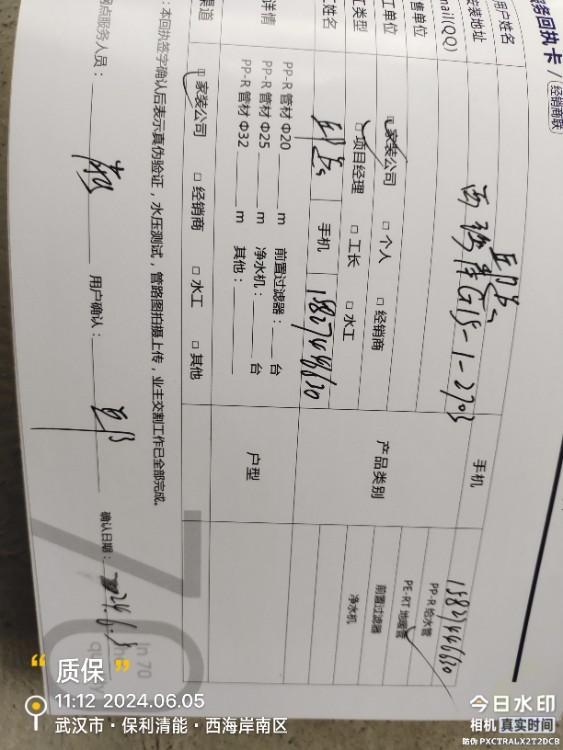 服务回执卡 / 经销商联
用户姓名
手机 15827446630
安装地址 西海岸G15-1-2703
mail(QQ)
售单位
产品类别
PP-R 给水管
PE-RT 地暖管
前置过滤器
净水机
工单位 家装公司 □ 个人 □ 经销商
工类型 □ 项目经理 □ 工长 □ 水工
姓名 手机 15827446630
详情 PP-R 管材 Φ20 m 前置过滤器: 台
PP-R 管材 Φ25 m 净水机: 台
PP-R 管材 Φ32 m 其他:
户型
渠道 家装公司 □ 经销商 □ 水工 □ 其他
: 本回执签字确认后表示真伪验证,水压测试,管路图拍摄上传,业主交割工作已全部完成。
网点服务人员: 用户确认: 确认日期: 24.6.5
70
In 70
“质保”
11:12 2024.06.05
武汉市·保利清能·西海岸南区
今日水印
相机 真实时间
防伪 PXCTRALX2T2DCB